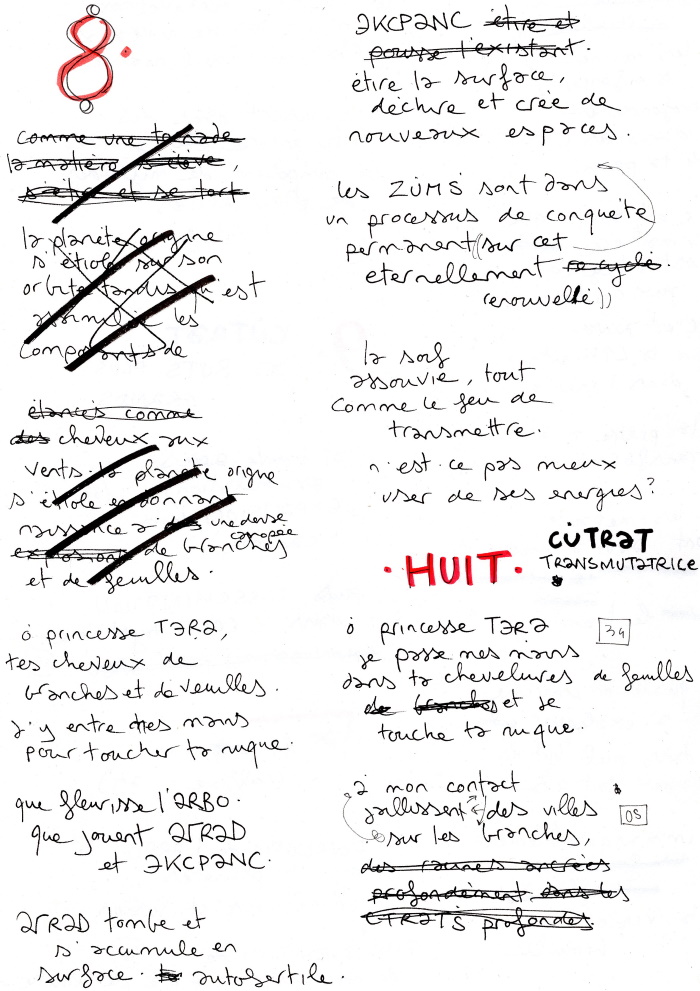 8.
comme une tornade
la matière s'élève,
s'étire et se tort
la planète origine
s'étiole sur son
orbite tandis qu'est
assimilée les
composants de
étancés comme
des cheveux aux
vents. la planète origne
s'étiole en donnant
naissance à des une dense
canopée
explosions de branches
et de feuilles.
ô princesse TARA,
tes cheveux de
branches et de veuilles.
j'y entre mes mains
pour toucher ta nuque.
que fleurisse l'ARBO.
que jouent ATRAD
et EKCPANC.
ATRAD tombe et
s'accumule en
surface. autofertile.
EKCPANC étire et
pousse l'existant.
étire la surface,
déchire et crée de
nouveaux espaces.
les ZÙMS sont dans
un processus de conquête
permanent (sur cet
eternellement recyclé.
renouvellé))
la soif
assouvie, tout
comme le feu de
transmettre.
n'est-ce pas mieux
user de ses energies?
·HUIT·
CÙTRAT
TRANSMUTATRICE
ô princesse TARA
34
je passe mes mains
dans ta chevelures de feuilles
de branches et je
touche ta nuque.
à mon contact
jaillissent des villes
05
sur les branches,
des racines ancrées
profondément dans les
CTRATS profondes.